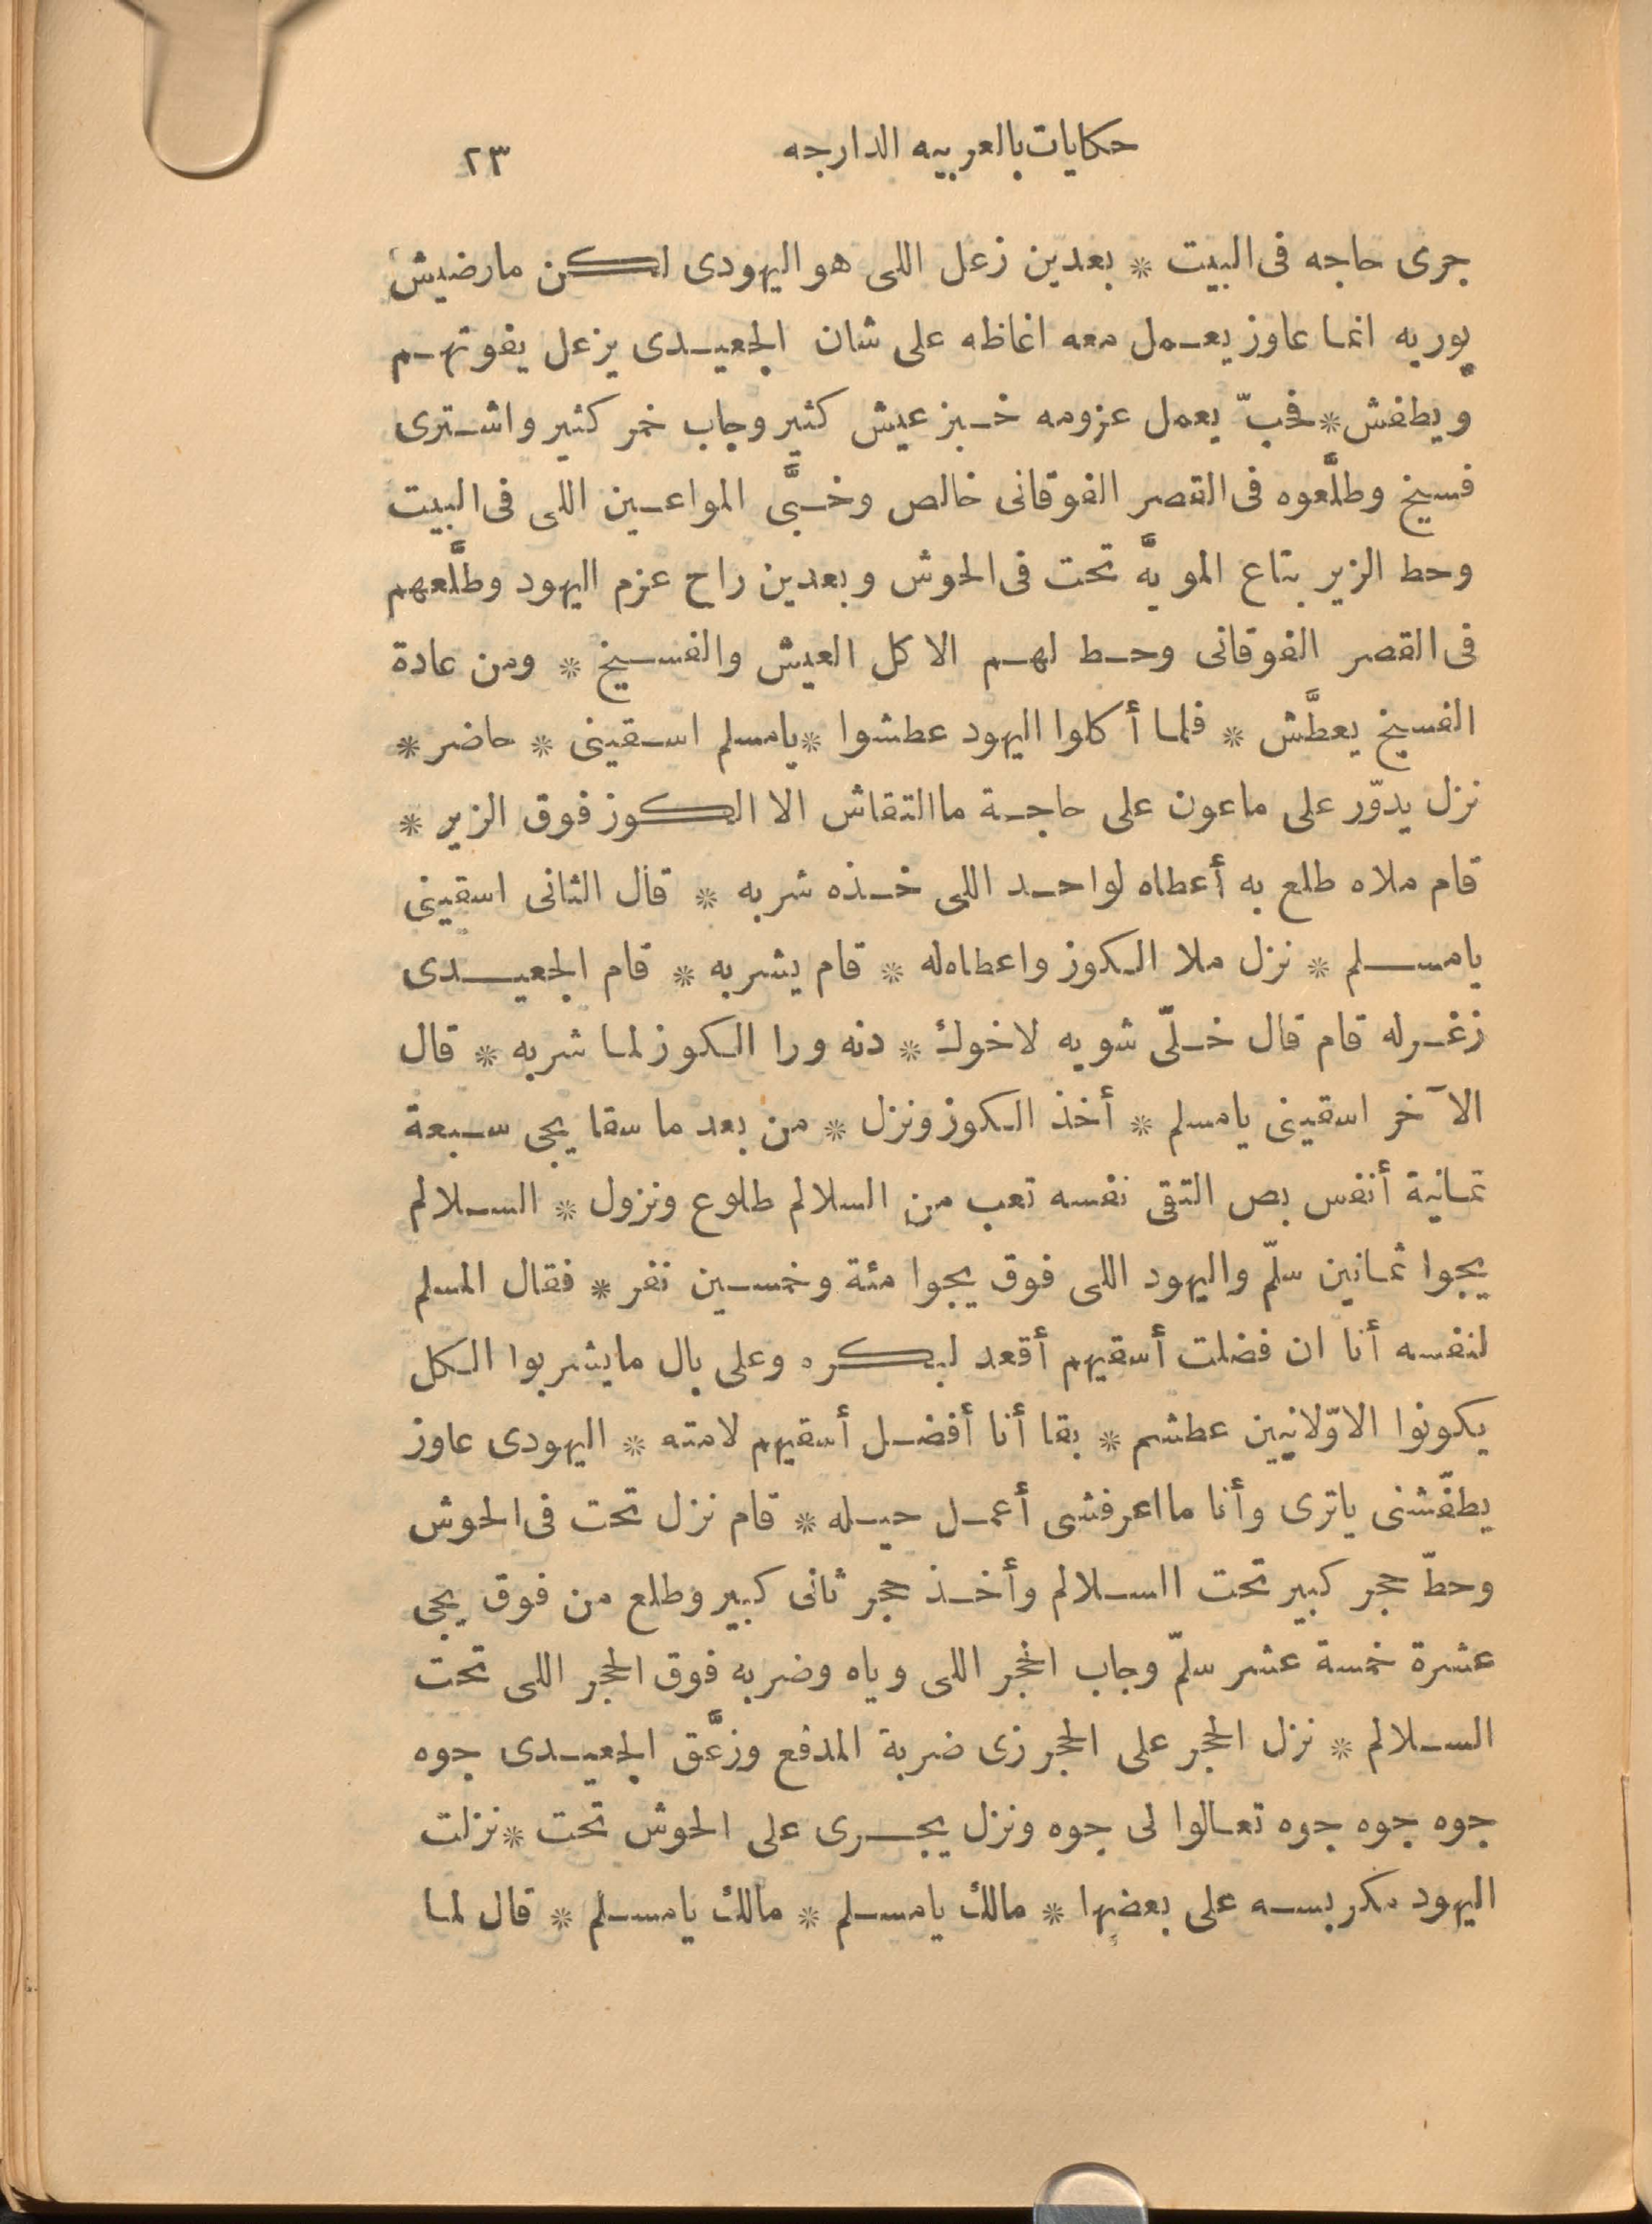 حكايات بالعربيه الدارجه ٢٣
جرى حاجه فى البيت * بعدين زعل اللى هو اليهودى لكن مارضيش
يوريه انما عاوز يعمل معه اغاظه على شان الجعيدى يزعل يفوتهم
ويطفش * فحبّ يعمل عزومه خبز عيش كثير وجاب خمر كثير واشترى
فسيخ وطلَّعوه فى القصر الفوقانى خالص وخبَّى المواعين اللى فى البيت
وحط الزير بتاع المويَّه تحت فى الحوش وبعدين راح عزم اليهود وطلَّعهم
فى القصر الفوقانى وحط لهم الاكل العيش والفسيخ * ومن عادة
الفسيخ يعطَّش * فلما أكلوا اليهود عطشوا * يامسلم اسقينى * حاضر *
نزل يدوّر على ماعون على حاجة ماالتقاش الا الكوز فوق الزير *
قام ملاه طلع به أعطاه لواحد اللى خذه شربه * قال الثانى اسقينى
يامسلم * نزل ملا الكوز واعطاه له * قام يشربه * قام الجعيدى
زغرله قام قال خلّى شويه لاخوك * دنه ورا الكوز لما شربه * قال
الآخر اسقينى يامسلم * أخذ الكوز ونزل * من بعد ما سقا يجى سبعة
تمانية أنفس بص التقى نفسه تعب من السلالم طلوع ونزول * السلالم
يجوا ثمانين سلّم واليهود اللى فوق يجوا مئة وخمسين نفر * فقال المسلم
لنفسه أنا ان فضلت أسقيهم أقعد لبكره وعلى بال مايشربوا الكل
يكونوا الاوّلانيين عطشم * بقا أنا أفضل أسقيهم لامته * اليهودى عاوز
يطفّشنى ياترى وأنا مااعرفشى أعمل حيله * قام نزل تحت فى الحوش
وحطّ حجر كبير تحت السلالم وأخذ حجر ثانى كبير وطلع من فوق يجى
عشرة خمسة عشر سلّم وجاب الحجر اللى وياه وضربه فوق الحجر اللى تحت
السلالم * نزل الحجر على الحجر زى ضربة المدفع وزعَّق الجعيدى جوه
جوه جوه جوه تعالوا لى جوه ونزل يجرى على الحوش تحت * نزلت
اليهود مكربسه على بعضها * مالك يامسلم * مالك يامسلم * قال لما